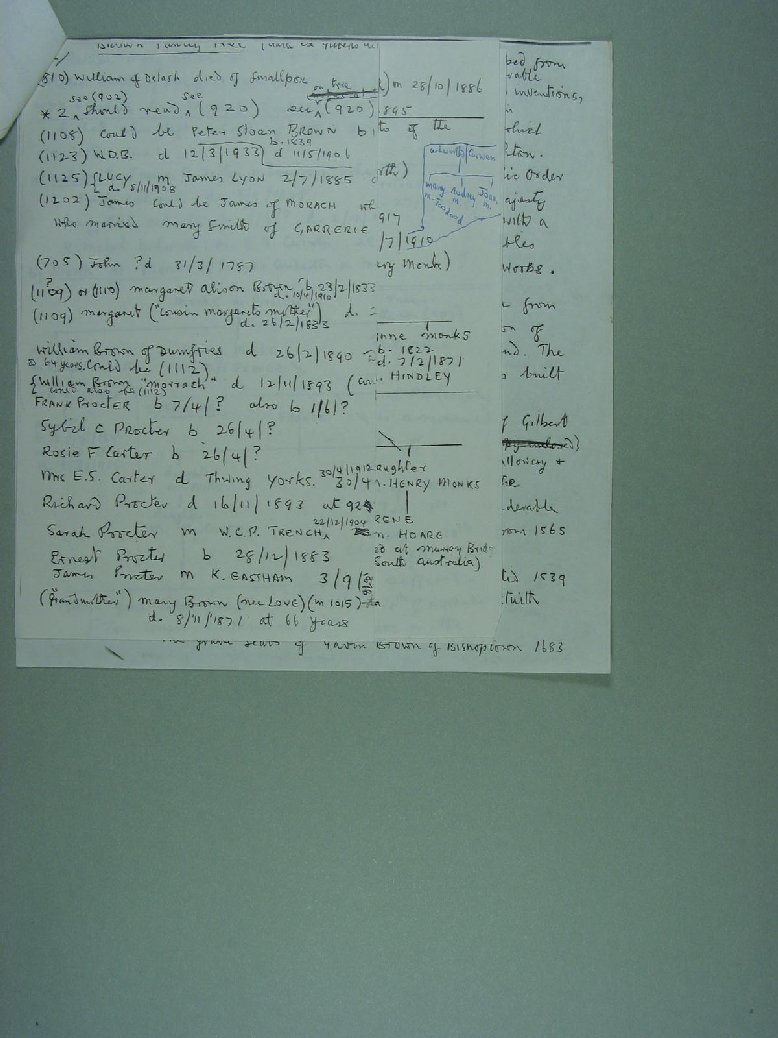 Brown Family Tree
(810) William of Delash died of Smallpox
on tree
see (902) see
* 2 should read (920) see (920)
(1108) Could be Peter Sloan BROWN b
b. 1839
(1123) W.D.B. d 12/3/1933 d 11/5/1906
(1125) LUCY m James LYON 2/7/1885
d. 8/11/1908
(1202) James Could be James of MORACH
who married Mary Smith of GARRERIE
(705) John ?d 31/3/1787
(1109) or (1110) Margaret Alison Brown b 23/2/1833
d. 10/4/1910
(1109) Margaret ("Cousin Margarets mother") d.
d. 26/2/1833
William Brown of Dumfries d 26/2/1890
64 years. Could be (1112)
William Brown "Morrach" d 12/11/1893
could also be (1112)
FRANK PROCTER b 7/4/? also b 1/6/?
Sybil C Procter b 26/4/?
Rosie F Carter b 26/4/?
30/4/1912
Mrs E.S. Carter d Thwing Yorks. 30/4
Richard Procter d 16/11/1893 at 92
22/12/1904
Sarah Procter m W.C.P. TRENCH
Ernest Procter b 28/12/1883
James Procter m K. EASTHAM 3/9/
("Grandmother") Mary Brown (nee LOVE) (m 1015)
d. 8/11/1871 at 66 years
on 28/10/1886
1895
to of the
917
/7/1910
Monks)
Mary Audrey Joan
m m
anne Monks
b. 1822
d. 7/2/1871
HINDLEY
daughter
HENRY MONKS
RENE
m. HOARE
at Murray Bridge
South Australia)
from
inventions,
Order
Majesty
with a
Woods.
from
on of
The
built
of Gilbert
Galloway +
from 1565
1539
with
The grave slab of Gavin Brown of Bishoptoun 1683